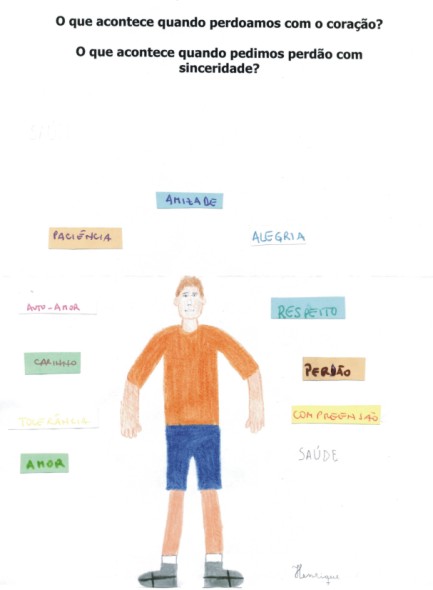 O que acontece quando perdoamos com o coração?
O que acontece quando pedimos perdão com
sinceridade?
AMIZADE
PACIÊNCIA
ALEGRIA
AUTO-AMOR
RESPEITO
CARINHO
PERDÃO
TOLERÂNCIA
COMPREENSÃO
AMOR
SAÚDE
Henrique